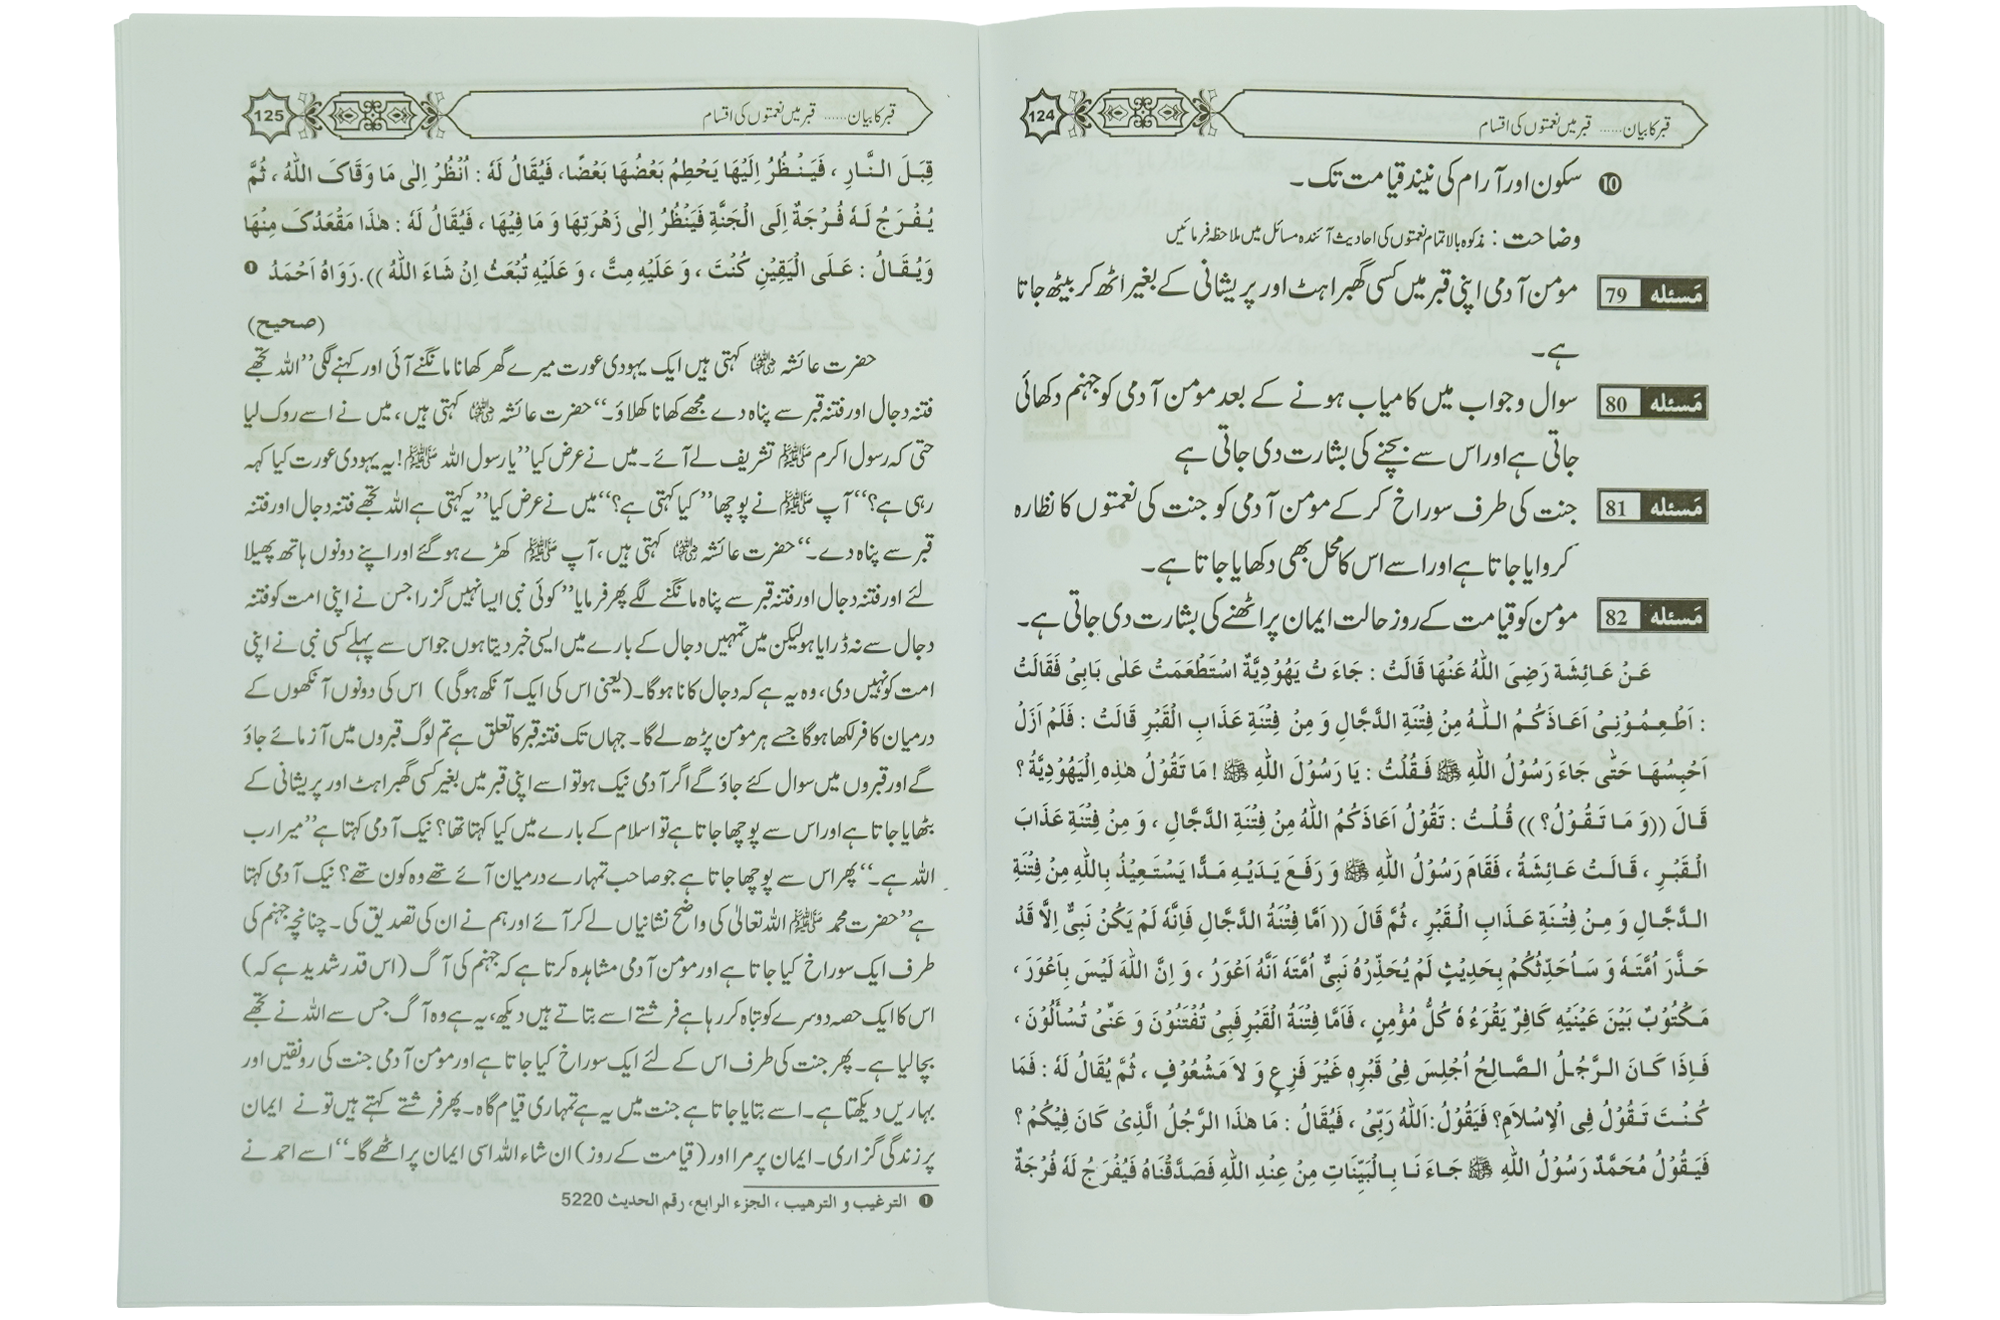 124
قبر کا بیان ...... قبر میں نعمتوں کی اقسام
10 سکون اور آرام کی نیند قیامت تک۔
وضاحت : مذکورہ بالا تمام نعمتوں کی احادیث آئندہ مسائل میں ملاحظہ فرمائیں
مَسئله 79 مومن آدمی اپنی قبر میں کسی گھبراہٹ اور پریشانی کے بغیر اٹھ کر بیٹھ جاتا
ہے۔
مَسئله 80 سوال و جواب میں کامیاب ہونے کے بعد مومن آدمی کو جہنم دکھائی
جاتی ہے اور اس سے بچنے کی بشارت دی جاتی ہے
مَسئله 81 جنت کی طرف سوراخ کر کے مومن آدمی کو جنت کی نعمتوں کا نظارہ
کروایا جاتا ہے اور اسے اس کا محل بھی دکھایا جاتا ہے۔
مَسئله 82 مومن کو قیامت کے روز حالت ایمان پر اٹھنے کی بشارت دی جاتی ہے۔
عَنْ عَائِشَةَ رَضِیَ اللّٰهُ عَنْهَا قَالَتْ : جَاءَ تْ یَهُوْدِیَّةٌ اسْتَطْعَمَتْ عَلٰی بَابِیْ فَقَالَتْ
: اَطْعِمُوْنِیْ اَعَاذَکُمُ اللّٰهُ مِنْ فِتْنَةِ الدَّجَّالِ وَ مِنْ فِتْنَةِ عَذَابِ الْقَبْرِ قَالَتْ : فَلَمْ اَزَلْ
اَحْبِسُهَا حَتّٰی جَاءَ رَسُوْلُ اللّٰهِ ﷺ فَقُلْتُ : یَا رَسُوْلَ اللّٰهِ ﷺ ! مَا تَقُوْلُ هٰذِهِ الْیَهُوْدِیَّةُ ؟
قَالَ (( وَ مَا تَقُوْلُ؟ )) قُلْتُ : تَقُوْلُ اَعَاذَکُمُ اللّٰهُ مِنْ فِتْنَةِ الدَّجَّالِ ، وَ مِنْ فِتْنَةِ عَذَابَ
الْقَبْرِ ، قَالَتْ عَائِشَةُ ، فَقَامَ رَسُوْلُ اللّٰهِ ﷺ وَ رَفَعَ یَدَیْهِ مَدًّا یَسْتَعِیْذُ بِاللّٰهِ مِنْ فِتْنَةِ
الدَّجَّالِ وَ مِنْ فِتْنَةِ عَذَابِ الْقَبْرِ ، ثُمَّ قَالَ (( اَمَّا فِتْنَةُ الدَّجَّالِ فَاِنَّهُ لَمْ یَکُنْ نَبِیٌّ اِلَّا قَدْ
حَذَّرَ اُمَّتَهُ وَ سَاُحَدِّثُکُمْ بِحَدِیْثٍ لَمْ یُحَذِّرْهُ نَبِیٌّ اُمَّتَهُ اَنَّهُ اَعْوَرُ ، وَ اِنَّ اللّٰهَ لَیْسَ بِاَعْوَرَ ،
مَکْتُوْبٌ بَیْنَ عَیْنَیْهِ کَافِرٌ یَقْرَءُ هُ کُلُّ مُؤْمِنٍ ، فَاَمَّا فِتْنَةُ الْقَبْرِ فَبِیْ تُفْتَنُوْنَ وَ عَنِّیْ تُسْأَلُوْنَ ،
فَاِذَا کَانَ الرَّجُلُ الصَّالِحُ اُجْلِسَ فِیْ قَبْرِهِ غَیْرَ فَزِعٍ وَ لاَ مَشْعُوْفٍ ، ثُمَّ یُقَالُ لَهُ : فَمَا
کُنْتَ تَقُوْلُ فِی الْاِسْلاَمِ؟ فَیَقُوْلُ: اَللّٰهُ رَبِّیْ ، فَیُقَالُ : مَا هٰذَا الرَّجُلُ الَّذِیْ کَانَ فِیْکُمْ ؟
فَیَقُوْلُ مُحَمَّدٌ رَسُوْلُ اللّٰهِ ﷺ جَاءَ نَا بِالْبَیِّنَاتِ مِنْ عِنْدِ اللّٰهِ فَصَدَّقْنَاهُ فَیُفْرَجُ لَهُ فُرْجَةٌ
125
قبر کا بیان ...... قبر میں نعمتوں کی اقسام
قِبَلَ النَّارِ ، فَیَنْظُرُ اِلَیْهَا یَحْطِمُ بَعْضُهَا بَعْضًا، فَیُقَالُ لَهُ : اُنْظُرْ اِلٰی مَا وَقَاکَ اللّٰهُ ، ثُمَّ
یُفْرَجُ لَهُ فُرْجَةٌ اِلَی الْجَنَّةِ فَیَنْظُرُ اِلٰی زَهْرَتِهَا وَ مَا فِیْهَا ، فَیُقَالُ لَهُ : هٰذَا مَقْعَدُکَ مِنْهَا
وَیُقَالُ : عَلَی الْیَقِیْنِ کُنْتَ ، وَ عَلَیْهِ مِتَّ ، وَ عَلَیْهِ تُبْعَثُ اِنْ شَاءَ اللّٰهُ )).رَوَاهُ اَحْمَدُ 1
(صحیح)
حضرت عائشہ رضی اللہ عنہا کہتی ہیں ایک یہودی عورت میرے گھر کھانا مانگنے آئی اور کہنے لگی ’’اللہ تجھے
فتنہ دجال اور فتنہ قبر سے پناہ دے مجھے کھانا کھلاؤ۔‘‘ حضرت عائشہ رضی اللہ عنہا کہتی ہیں، میں نے اسے روک لیا
حتی کہ رسول اکرم ﷺ تشریف لے آئے۔ میں نے عرض کیا ’’یا رسول اللہ ﷺ! یہ یہودی عورت کیا کہہ
رہی ہے؟‘‘ آپ ﷺ نے پوچھا ’’کیا کہتی ہے؟‘‘ میں نے عرض کیا ’’یہ کہتی ہے اللہ تجھے فتنہ دجال اور فتنہ
قبر سے پناہ دے۔‘‘ حضرت عائشہ رضی اللہ عنہا کہتی ہیں، آپ ﷺ کھڑے ہو گئے اور اپنے دونوں ہاتھ پھیلا
لئے اور فتنہ دجال اور فتنہ قبر سے پناہ مانگنے لگے پھر فرمایا ’’کوئی نبی ایسا نہیں گزرا جس نے اپنی امت کو فتنہ
دجال سے نہ ڈرایا ہو لیکن میں تمہیں دجال کے بارے میں ایسی خبر دیتا ہوں جو اس سے پہلے کسی نبی نے اپنی
امت کو نہیں دی، وہ یہ ہے کہ دجال کانا ہوگا۔ (یعنی اس کی ایک آنکھ ہوگی) اس کی دونوں آنکھوں کے
درمیان کافر لکھا ہوگا جسے ہر مومن پڑھ لے گا۔ جہاں تک فتنہ قبر کا تعلق ہے تم لوگ قبروں میں آزمائے جاؤ
گے اور قبروں میں سوال کئے جاؤ گے اگر آدمی نیک ہو تو اسے اپنی قبر میں بغیر کسی گھبراہٹ اور پریشانی کے
بٹھایا جاتا ہے اور اس سے پوچھا جاتا ہے تو اسلام کے بارے میں کیا کہتا تھا؟ نیک آدمی کہتا ہے ’’میرا رب
اللہ ہے۔‘‘ پھر اس سے پوچھا جاتا ہے جو صاحب تمہارے درمیان آئے تھے وہ کون تھے؟ نیک آدمی کہتا
ہے ’’حضرت محمد ﷺ اللہ تعالیٰ کی واضح نشانیاں لے کر آئے اور ہم نے ان کی تصدیق کی۔ چنانچہ جہنم کی
طرف ایک سوراخ کیا جاتا ہے اور مومن آدمی مشاہدہ کرتا ہے کہ جہنم کی آگ (اس قدر شدید ہے کہ)
اس کا ایک حصہ دوسرے کو تباہ کر رہا ہے فرشتے اسے بتاتے ہیں دیکھ، یہ ہے وہ آگ جس سے اللہ نے تجھے
بچا لیا ہے۔ پھر جنت کی طرف اس کے لئے ایک سوراخ کیا جاتا ہے اور مومن آدمی جنت کی رونقیں اور
بہاریں دیکھتا ہے۔ اسے بتایا جاتا ہے جنت میں یہ ہے تمہاری قیام گاہ۔ پھر فرشتے کہتے ہیں تو نے ایمان
پر زندگی گزاری۔ ایمان پر مرا اور (قیامت کے روز) ان شاء اللہ اسی ایمان پر اٹھے گا۔‘‘ اسے احمد نے
1 الترغیب و الترهیب ، الجزء الرابع، رقم الحدیث 5220